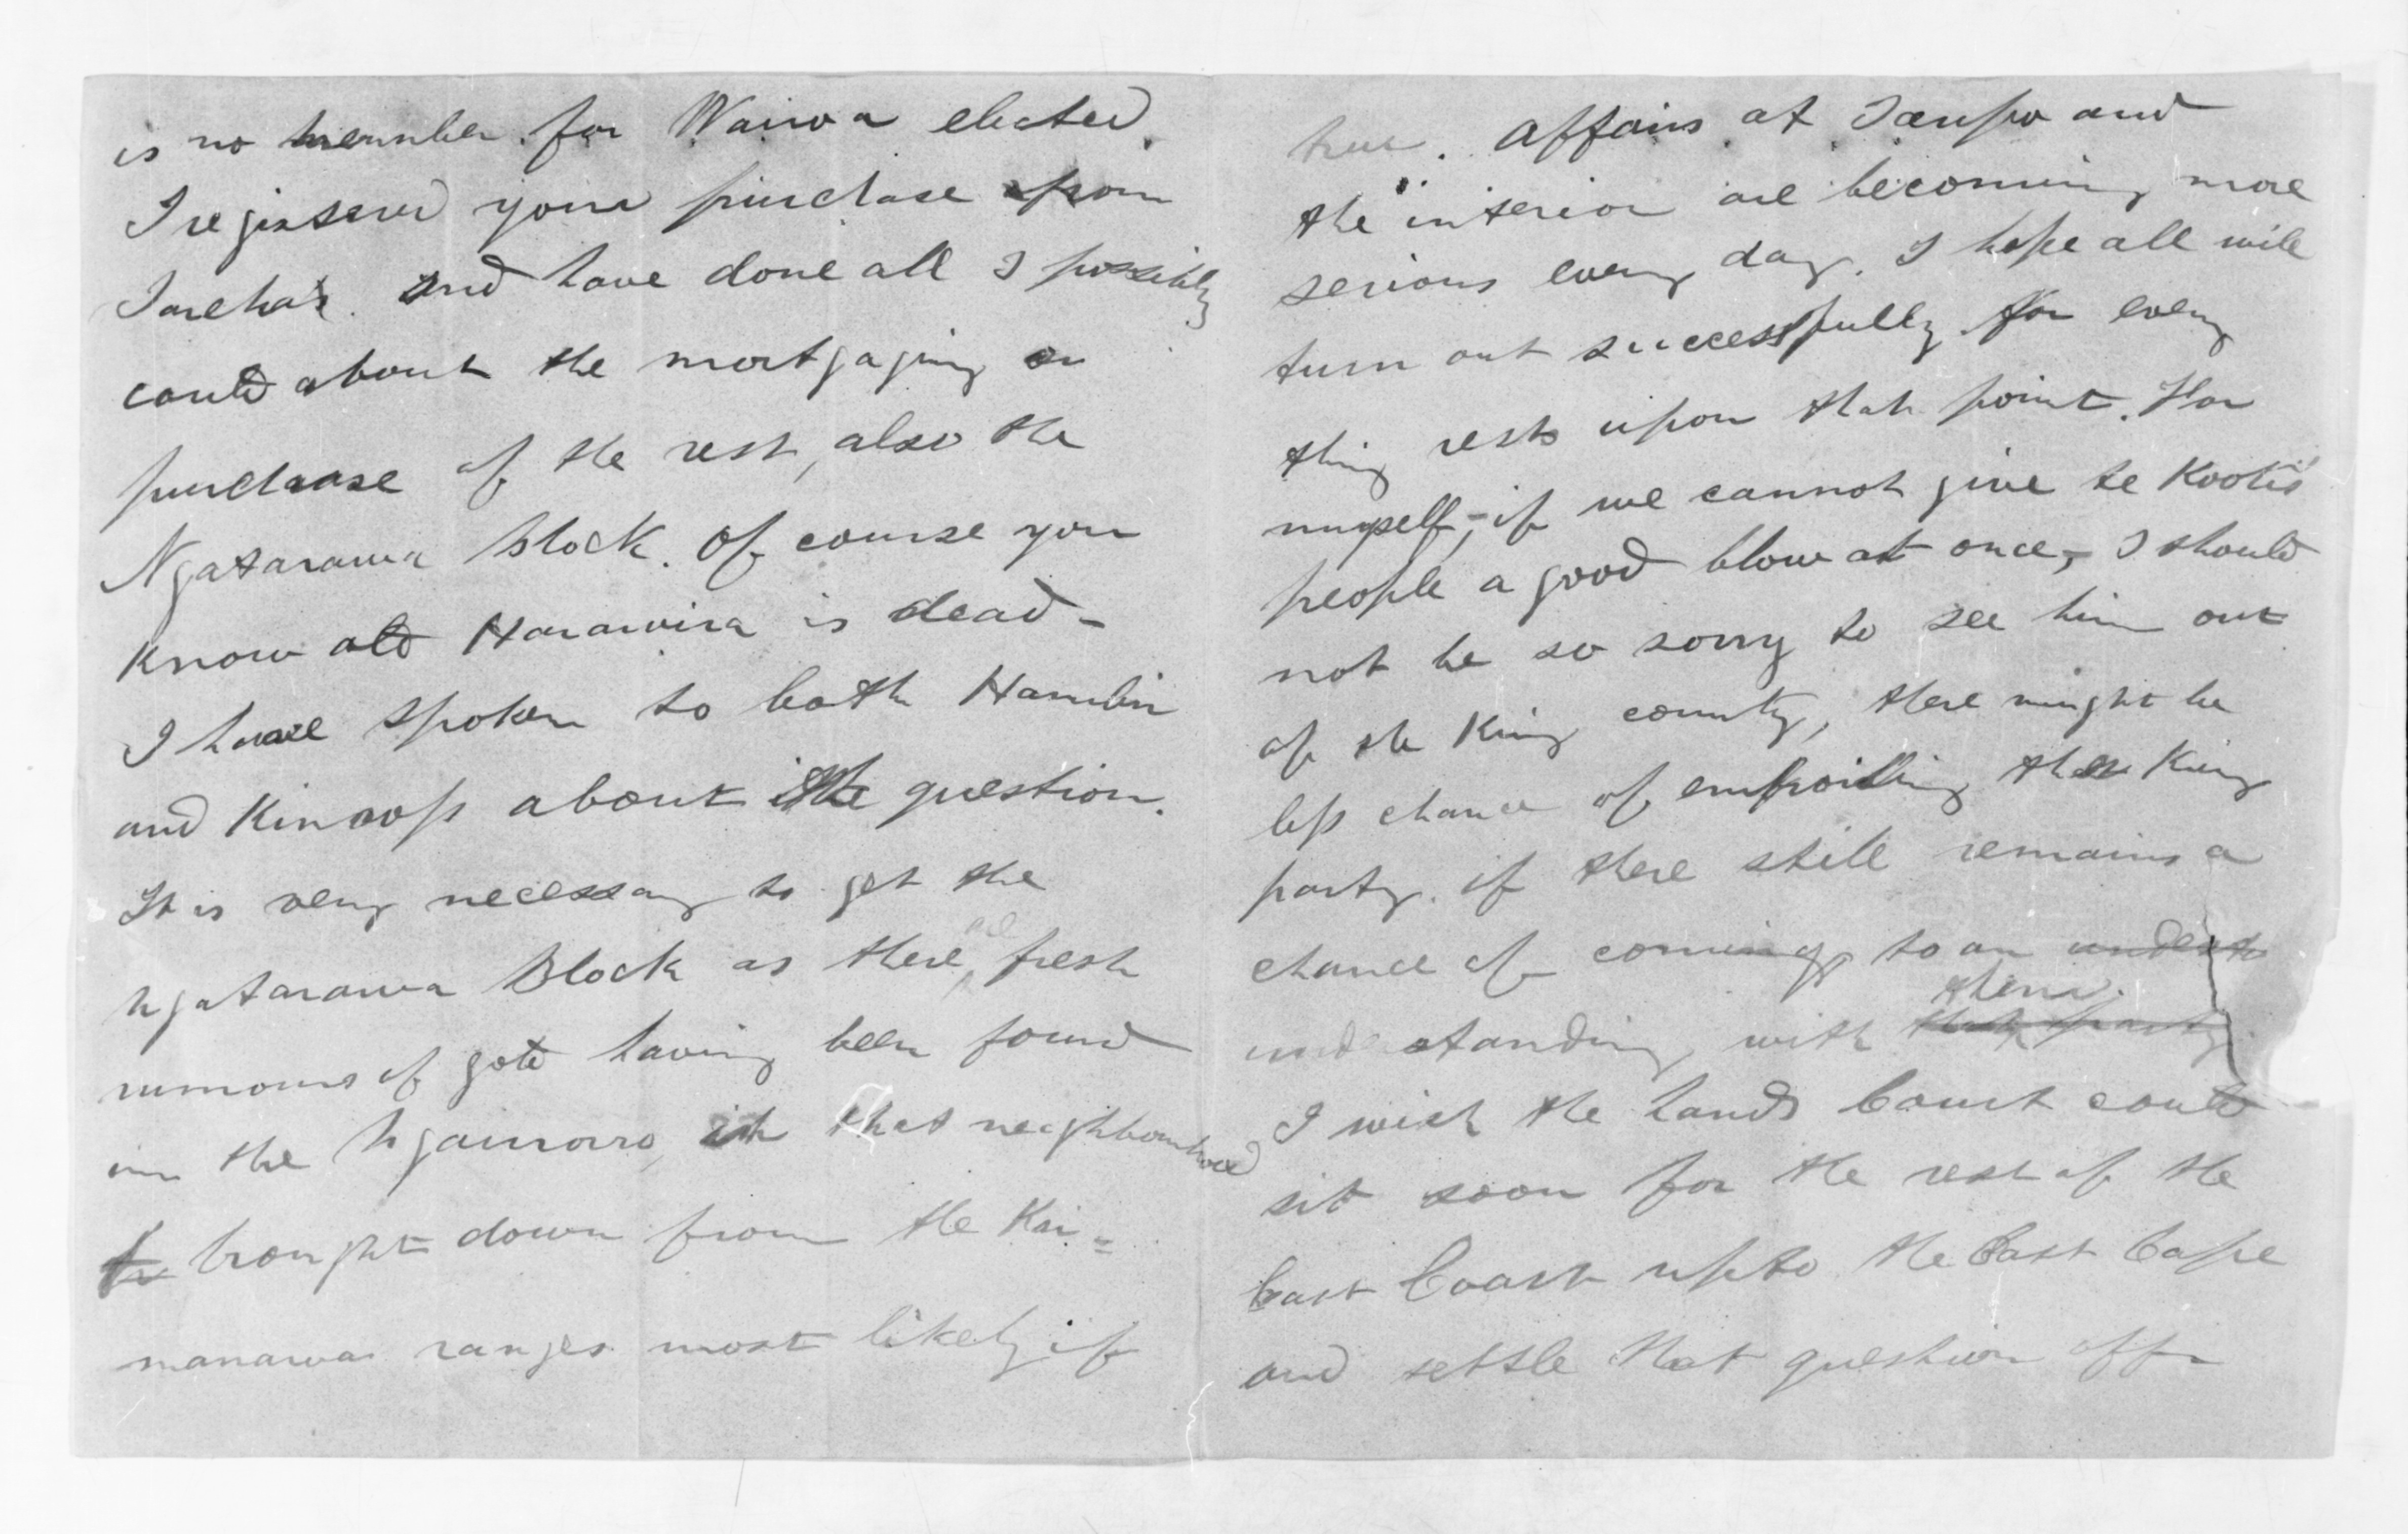 is no member for Wairoa elected.
I registered your purchase from
Tareha's. And have done all I possibly
could about the mortgaging or
purchase of the rest, also the
Ngatarawa block. Of course you
know old Harawira is dead -
I have spoken to both Hamlin
and Kinross about the question.
It is very necessary to get the
Ngatarawa Block as there are fresh
rumours of gold having been found
in the Ngaruroro, in that neighbourhood
brought down from the Kai=
manawa ranges most likely if
true. Affairs at Taupo and
the interior are becoming more
serious every day. I hope all will
turn out successfully for every
thing rests upon that point. For
myself, - if we cannot give te Kooti's
people a good blow at once, - I should
not be so sorry to see him out
of the King country, there might be
less chance of embroiling the King
party. if there still remains a
chance of coming to an underst
understanding with them. that party
I wish the Lands Court could
sit soon for the rest of the
East Coast up to the East Cape
and settle that question off